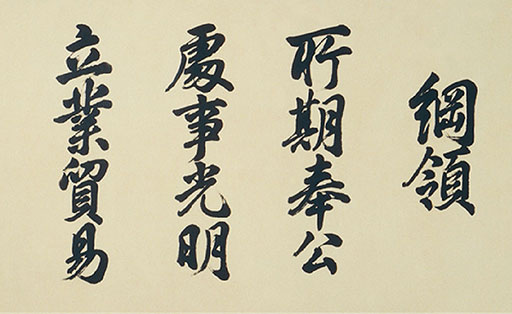 綱領
所期奉公
處事光明
立業貿易